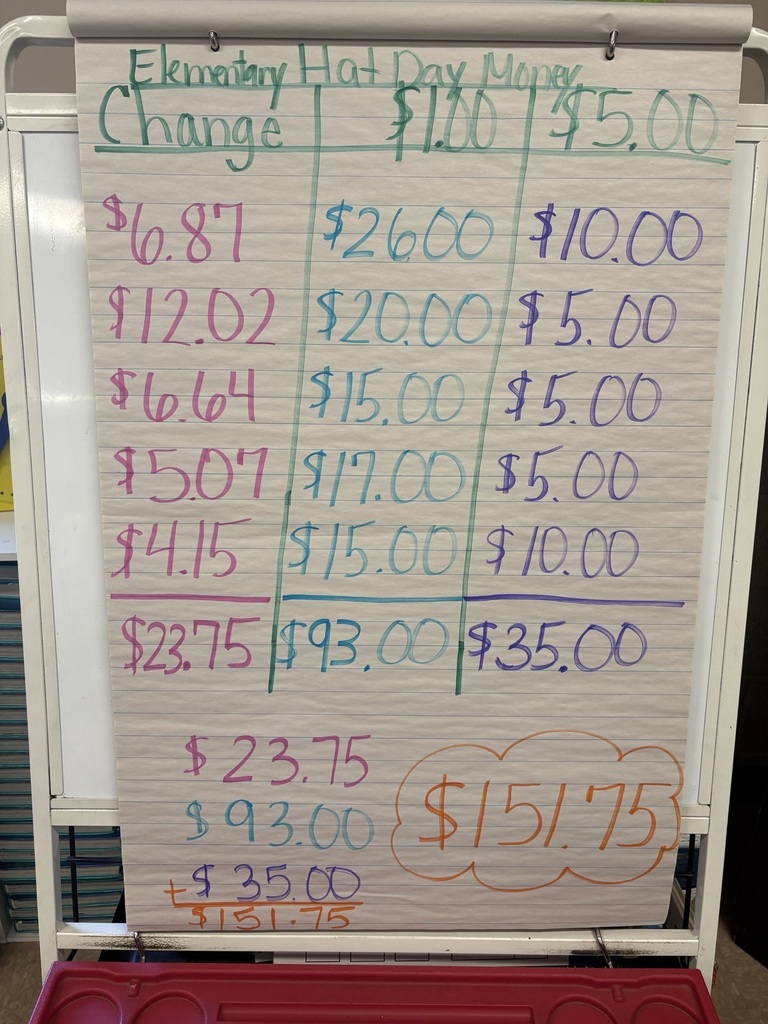 Elementary Hat Day Money
Change $1.00 $5.00
$6.87 $26.00 $10.00
$12.02 $20.00 $5.00
$6.64 $15.00 $5.00
$5.07 $17.00 $5.00
$4.15 $15.00 $10.00
$23.75 $93.00 $35.00
$23.75
$93.00
+ $35.00
$151.75
$151.75